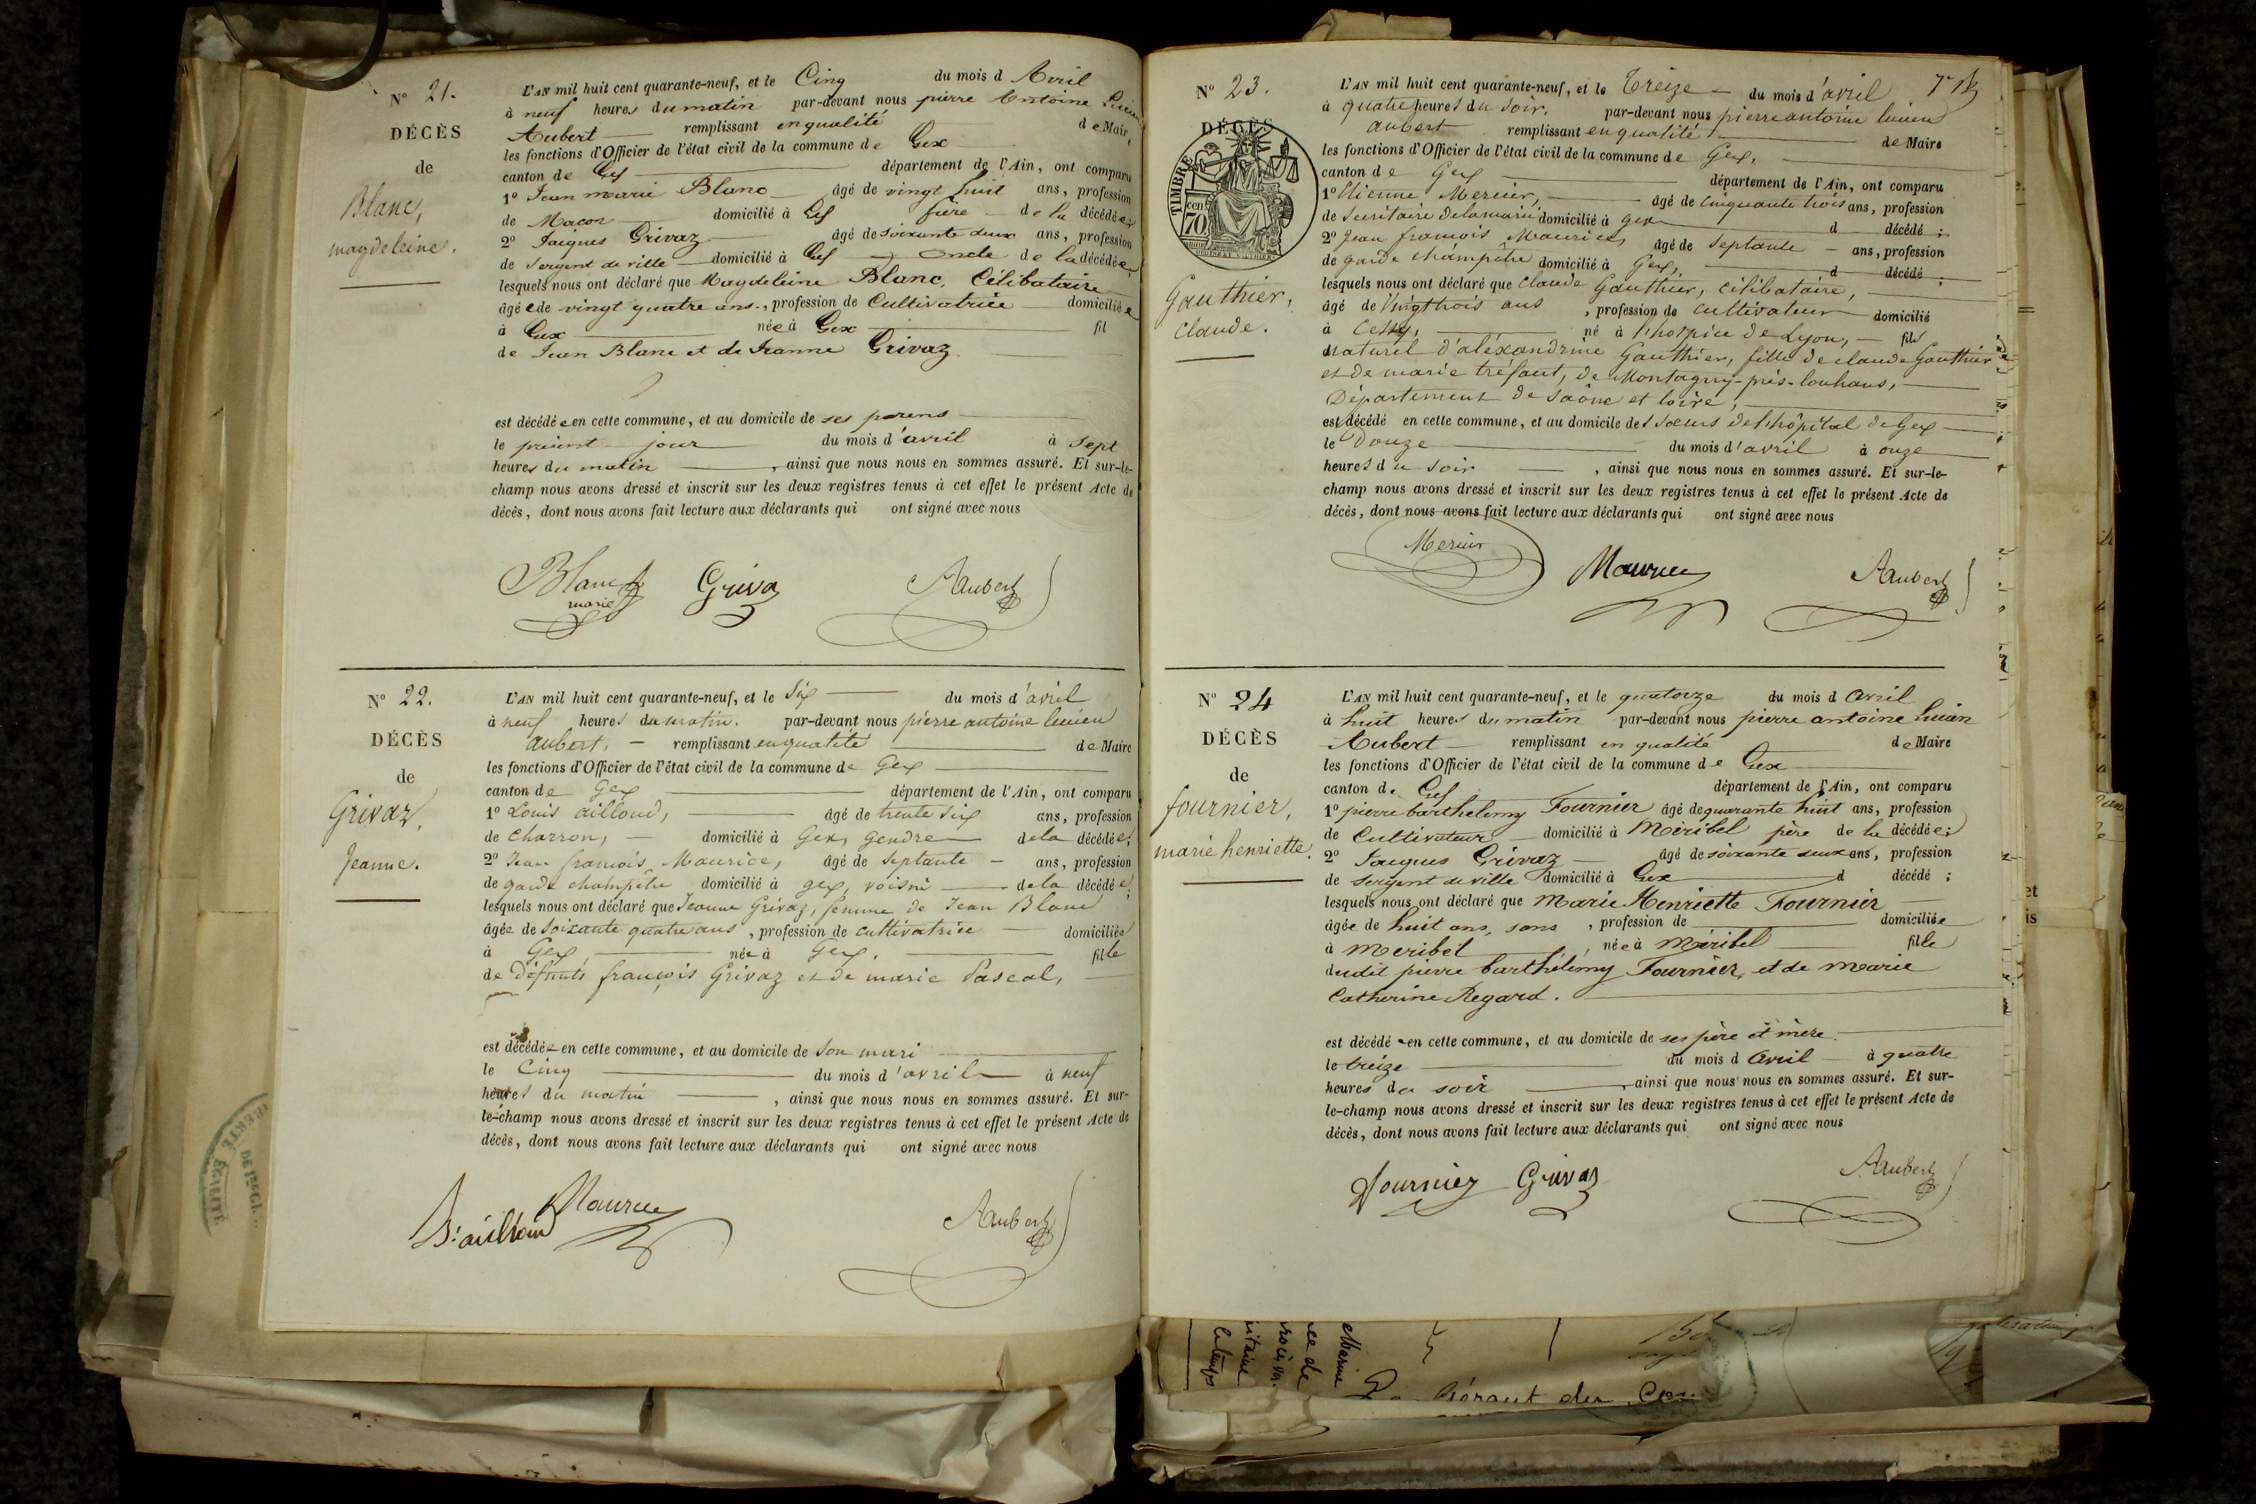 N° 21.
DÉCÈS
de
Blanc,
magdeleine.
L'AN mil huit cent quarante-neuf, et le Cinq du mois d Avril
à neuf heures du matin par-devant nous pierre Antoine Lucien
Aubert remplissant en qualité de Maire,
les fonctions d'Officier de l'état civil de la commune de Gex
canton de Gex département de l'Ain, ont comparu
1° Jean marie Blanc âgé de vingt huit ans, profession
de Macon domicilié à Gex frère de la décédée;
2° Jacques Grivaz âgé de soixante deux ans, profession
de sergent de ville domicilié à Gex oncle de la décédée,
lesquels nous ont déclaré que Magdeleine Blanc, Célibataire
âgée de vingt quatre ans, profession de Cultivatrice domiciliée
à Gex née à Gex fil
de Jean Blanc et de Jeanne Grivaz
est décédée en cette commune, et au domicile de ses parens
le présent jour du mois d'avril à sept
heures du matin, ainsi que nous nous en sommes assuré. Et sur-le-
champ nous avons dressé et inscrit sur les deux registres tenus à cet effet le présent Acte de
décès, dont nous avons fait lecture aux déclarants qui ont signé avec nous
Blanc marie Griva Aubert
N° 22.
DÉCÈS
de
Grivaz,
Jeanne.
L'AN mil huit cent quarante-neuf, et le Six du mois d'avril
à neuf heures du matin. par-devant nous pierre antoine lucien
aubert, remplissant en qualité de Maire
les fonctions d'Officier de l'état civil de la commune de Gex
canton de Gex département de l'Ain, ont comparu
1° Louis ailloud, âgé de trente six ans, profession
de Charron, domicilié à Gex, gendre de la décédée;
2° Jean françois Maurice, âgé de septante ans, profession
de garde champêtre domicilié à gex, voisin de la décédée;
lesquels nous ont déclaré que Jeanne Grivaz, femme de Jean Blanc
âgée de soixante quatre ans, profession de cultivatrice domiciliée
à Gex née à Gex, fille
de Défunts françois Grivaz et de marie Pascal,
est décédée en cette commune, et au domicile de son mari
le Cinq du mois d'avril à neuf
heures du matin, ainsi que nous nous en sommes assuré. Et sur-
le-champ nous avons dressé et inscrit sur les deux registres tenus à cet effet le présent Acte de
décès, dont nous avons fait lecture aux déclarants qui ont signé avec nous
ailloud Maurice Aubert
N° 23.
DÉCÈS
TIMBRE
cen 70
Gauthier,
claude.
L'AN mil huit cent quarante-neuf, et le Treize du mois d'avril
à quatre heures du soir, par-devant nous pierre antoine lucien
aubert remplissant en qualité de Maire
les fonctions d'Officier de l'état civil de la commune de Gex,
canton de Gex département de l'Ain, ont comparu
1° Etienne Mercier, âgé de cinquante trois ans, profession
de secrétaire de la mairie domicilié à gex d décédé;
2° Jean françois Maurice, âgé de septante ans, profession
de garde champêtre domicilié à Gex, d décédé;
lesquels nous ont déclaré que claude Gauthier, célibataire,
âgé de vingt trois ans, profession de cultivateur domicilié
à Cessy, né à l'hospice de Lyon, fils
naturel d'aléxandrine Gauthier, fille de claude Gauthier
et de marie tréfaut, de Montagny-près-louhans,
Département de Saône et loire,
est décédé en cette commune, et au domicile des sœurs de l'hôpital de Gex
le Douze du mois d'avril à onze
heures du soir, ainsi que nous nous en sommes assuré. Et sur-le-
champ nous avons dressé et inscrit sur les deux registres tenus à cet effet le présent Acte de
décès, dont nous avons fait lecture aux déclarants qui ont signé avec nous
Mercier Maurice Aubert
N° 24
DÉCÈS
de
fournier,
marie henriette.
L'AN mil huit cent quarante-neuf, et le quatorze du mois d avril
à huit heures du matin par-devant nous pierre antoine lucien
Aubert remplissant en qualité de Maire
les fonctions d'Officier de l'état civil de la commune de Gex
canton de Gex département de l'Ain, ont comparu
1° pierre barthelemy Fournier âgé de quarante huit ans, profession
de Cultivateur domicilié à Méribel père de la décédée;
2° Jacques Grivaz âgé de soixante deux ans, profession
de sergent de ville domicilié à Gex d décédé;
lesquels nous ont déclaré que Marie Henriette Fournier
âgée de huit ans, sans, profession de domiciliée
à Meribel, née à Méribel fille
dudit pierre barthélémy Fournier, et de marie
Catherine Regard.
est décédée en cette commune, et au domicile de ses père et mère
le treize du mois d avril à quatre
heures du soir, ainsi que nous nous en sommes assuré. Et sur-
le-champ nous avons dressé et inscrit sur les deux registres tenus à cet effet le présent Acte de
décès, dont nous avons fait lecture aux déclarants qui ont signé avec nous
Fournier Grivaz Aubert